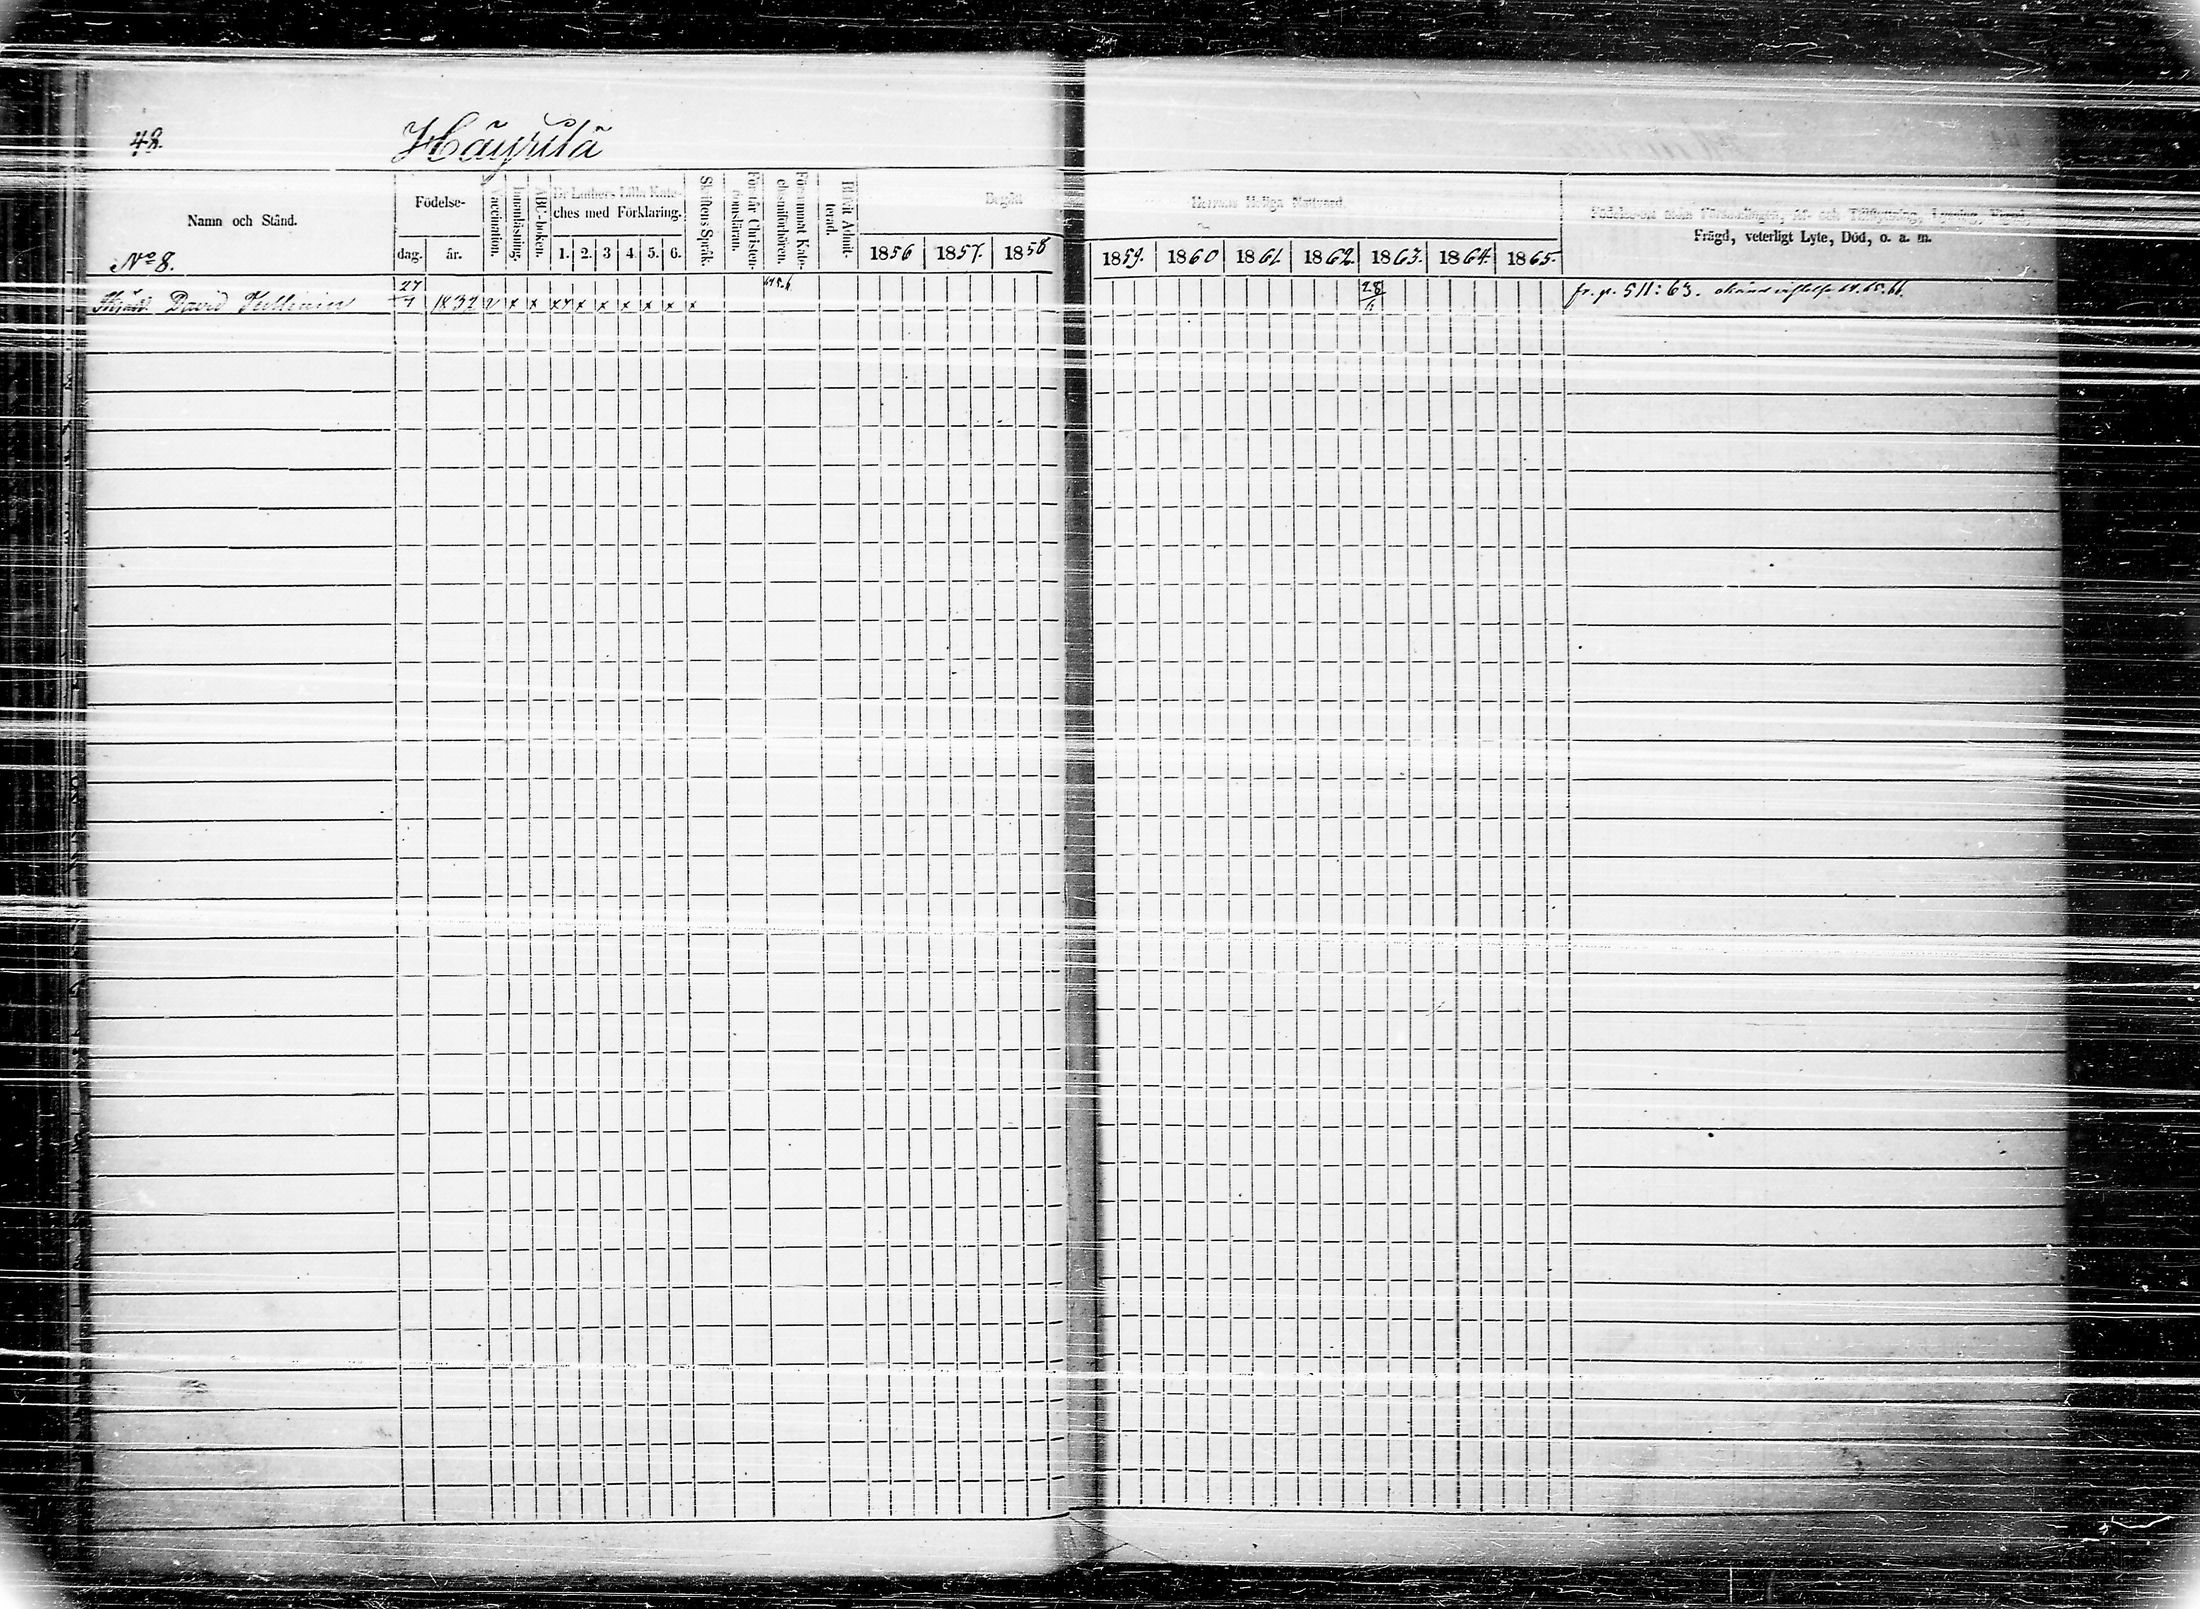 48.
Häyrilä
Namn och Stånd.
Födelse-
dag. år.
Vaccination.
Innanläsning.
ABC-boken.
Dr Luthers Lilla Kate-
ches med Förklaring.
1. 2. 3 4 5. 6.
Skriftens Språk.
Förstår Christen-
domsläran.
Försummat Kate-
chesmiförhören.
Blifvit Admit-
terad.
Begått
1856 1857. 1858
Herrans Heliga Nattvard.
1859. 1860 1861. 1862. 1863. 1864. 1865.
Födelse-ort utom Församlingen, Af- och Tillflyttning, Lysning, Vigsel,
Frägd, veterligt Lyte, Död, o. a. m.
No 8.
David 27/7 1832 v x x x x x x x x x 28 fr. p. 511: 63.